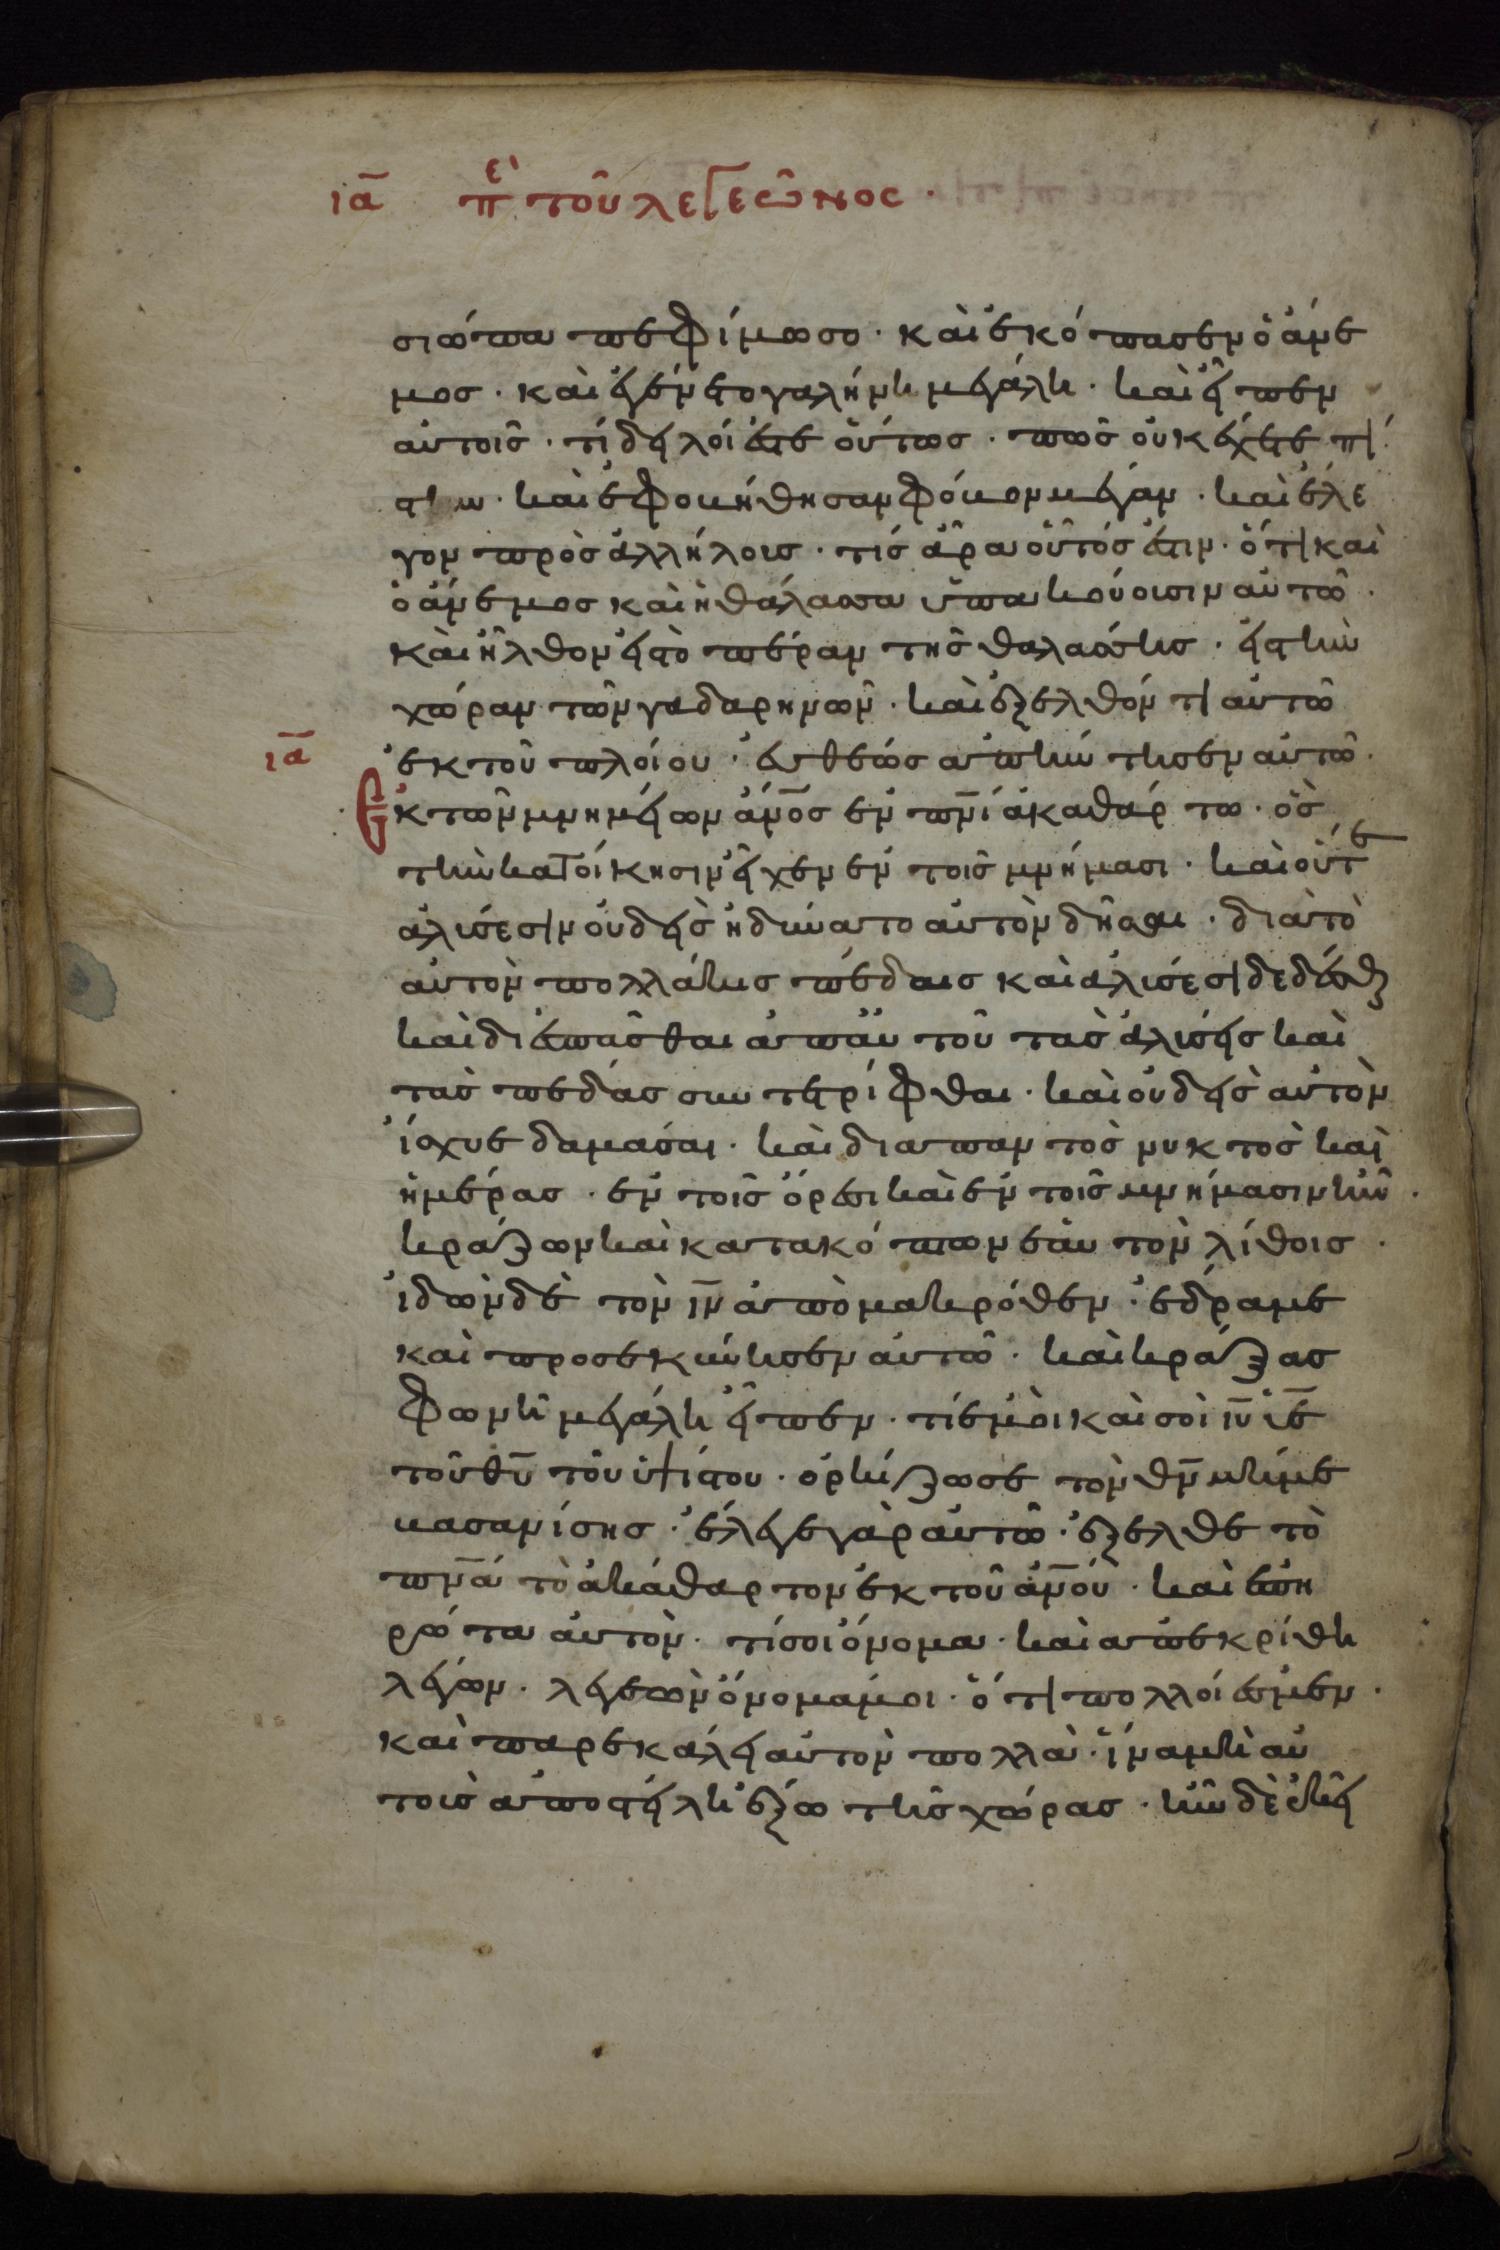 ια πε τοῦ λεγεῶνος ·
σιώπα πεφίμωσο · καὶ ἐκόπασεν ὁ ἄνε
μος · καὶ ἐγένετο γαλήνη μεγάλη · καὶ εἶπεν
αὐτοῖς · τί δειλοί ἐστε οὕτως · πῶς οὐκ ἔχετε πί
στιν · καὶ ἐφοβήθησαν φόβον μέγαν · καὶ ἔλε
γον πρὸς ἀλλήλους · τίς ἄρα οὗτός ἐστιν · ὅτι καὶ
ὁ ἄνεμος καὶ ἡ θάλασσα ὑπακούουσιν αὐτῶ ·
καὶ ἦλθον εἰς τὸ πέραν τῆς θαλάσσης · εἰς τὴν
χώραν τῶν γαδαρηνῶν · καὶ ἐξελθόντι αὐτῶ
ια
ἐκ τοῦ πλοίου · εὐθέως ἀπήντησεν αὐτῶ ·
Ἐκ τῶν μνημείων ἀνος ἐν πνι ἀκαθάρτω · ὃς
τὴν κατοίκησιν εἶχεν ἐν τοῖς μνήμασι · καὶ οὔτε
ἁλύσεσιν οὐδεὶς ἠδύνατο αὐτὸν δῆσαι · διὰ τὸ
αὐτὸν πολλάκις πέδαις καὶ ἁλύσεσι δεδέσθαι
καὶ διεσπᾶσθαι ὑπ' αὐτοῦ τὰς ἁλύσεις καὶ
τὰς πέδας συντετρίφθαι · καὶ οὐδεὶς αὐτὸν
ἴσχυε δαμάσαι · καὶ διαπαντὸς νυκτὸς καὶ
ἡμέρας · ἐν τοῖς ὄρεσι καὶ ἐν τοῖς μνήμασιν ἦν ·
κράζων καὶ κατακόπτων ἑαυτὸν λίθοις ·
ἰδὼν δὲ τὸν ιν ἀπὸ μακρόθεν · ἔδραμε
καὶ προσεκύνησεν αὐτῶ · καὶ κράξας
φωνῆ μεγάλη εἶπεν · τί ἐμοὶ καὶ σοὶ ιυ υἱὲ
τοῦ θυ τοῦ ὑψίστου · ὁρκίζω σε τὸν θν μή με
βασανίσης · ἔλεγε γὰρ αὐτῶ · ἔξελθε τὸ
πνα τὸ ἀκάθαρτον ἐκ τοῦ ἀνου · καὶ ἐπη
ρώτα αὐτὸν · τί σοι ὄνομα · καὶ ἀπεκρίθη
λέγων · λεγεὼν ὄνομά μοι · ὅτι πολλοί ἐσμεν ·
καὶ παρεκάλει αὐτὸν πολλὰ · ἵνα μὴ αὐ
τοὺς ἀποστείλη ἔξω τῆς χώρας · ἦν δὲ ἐκεῖ